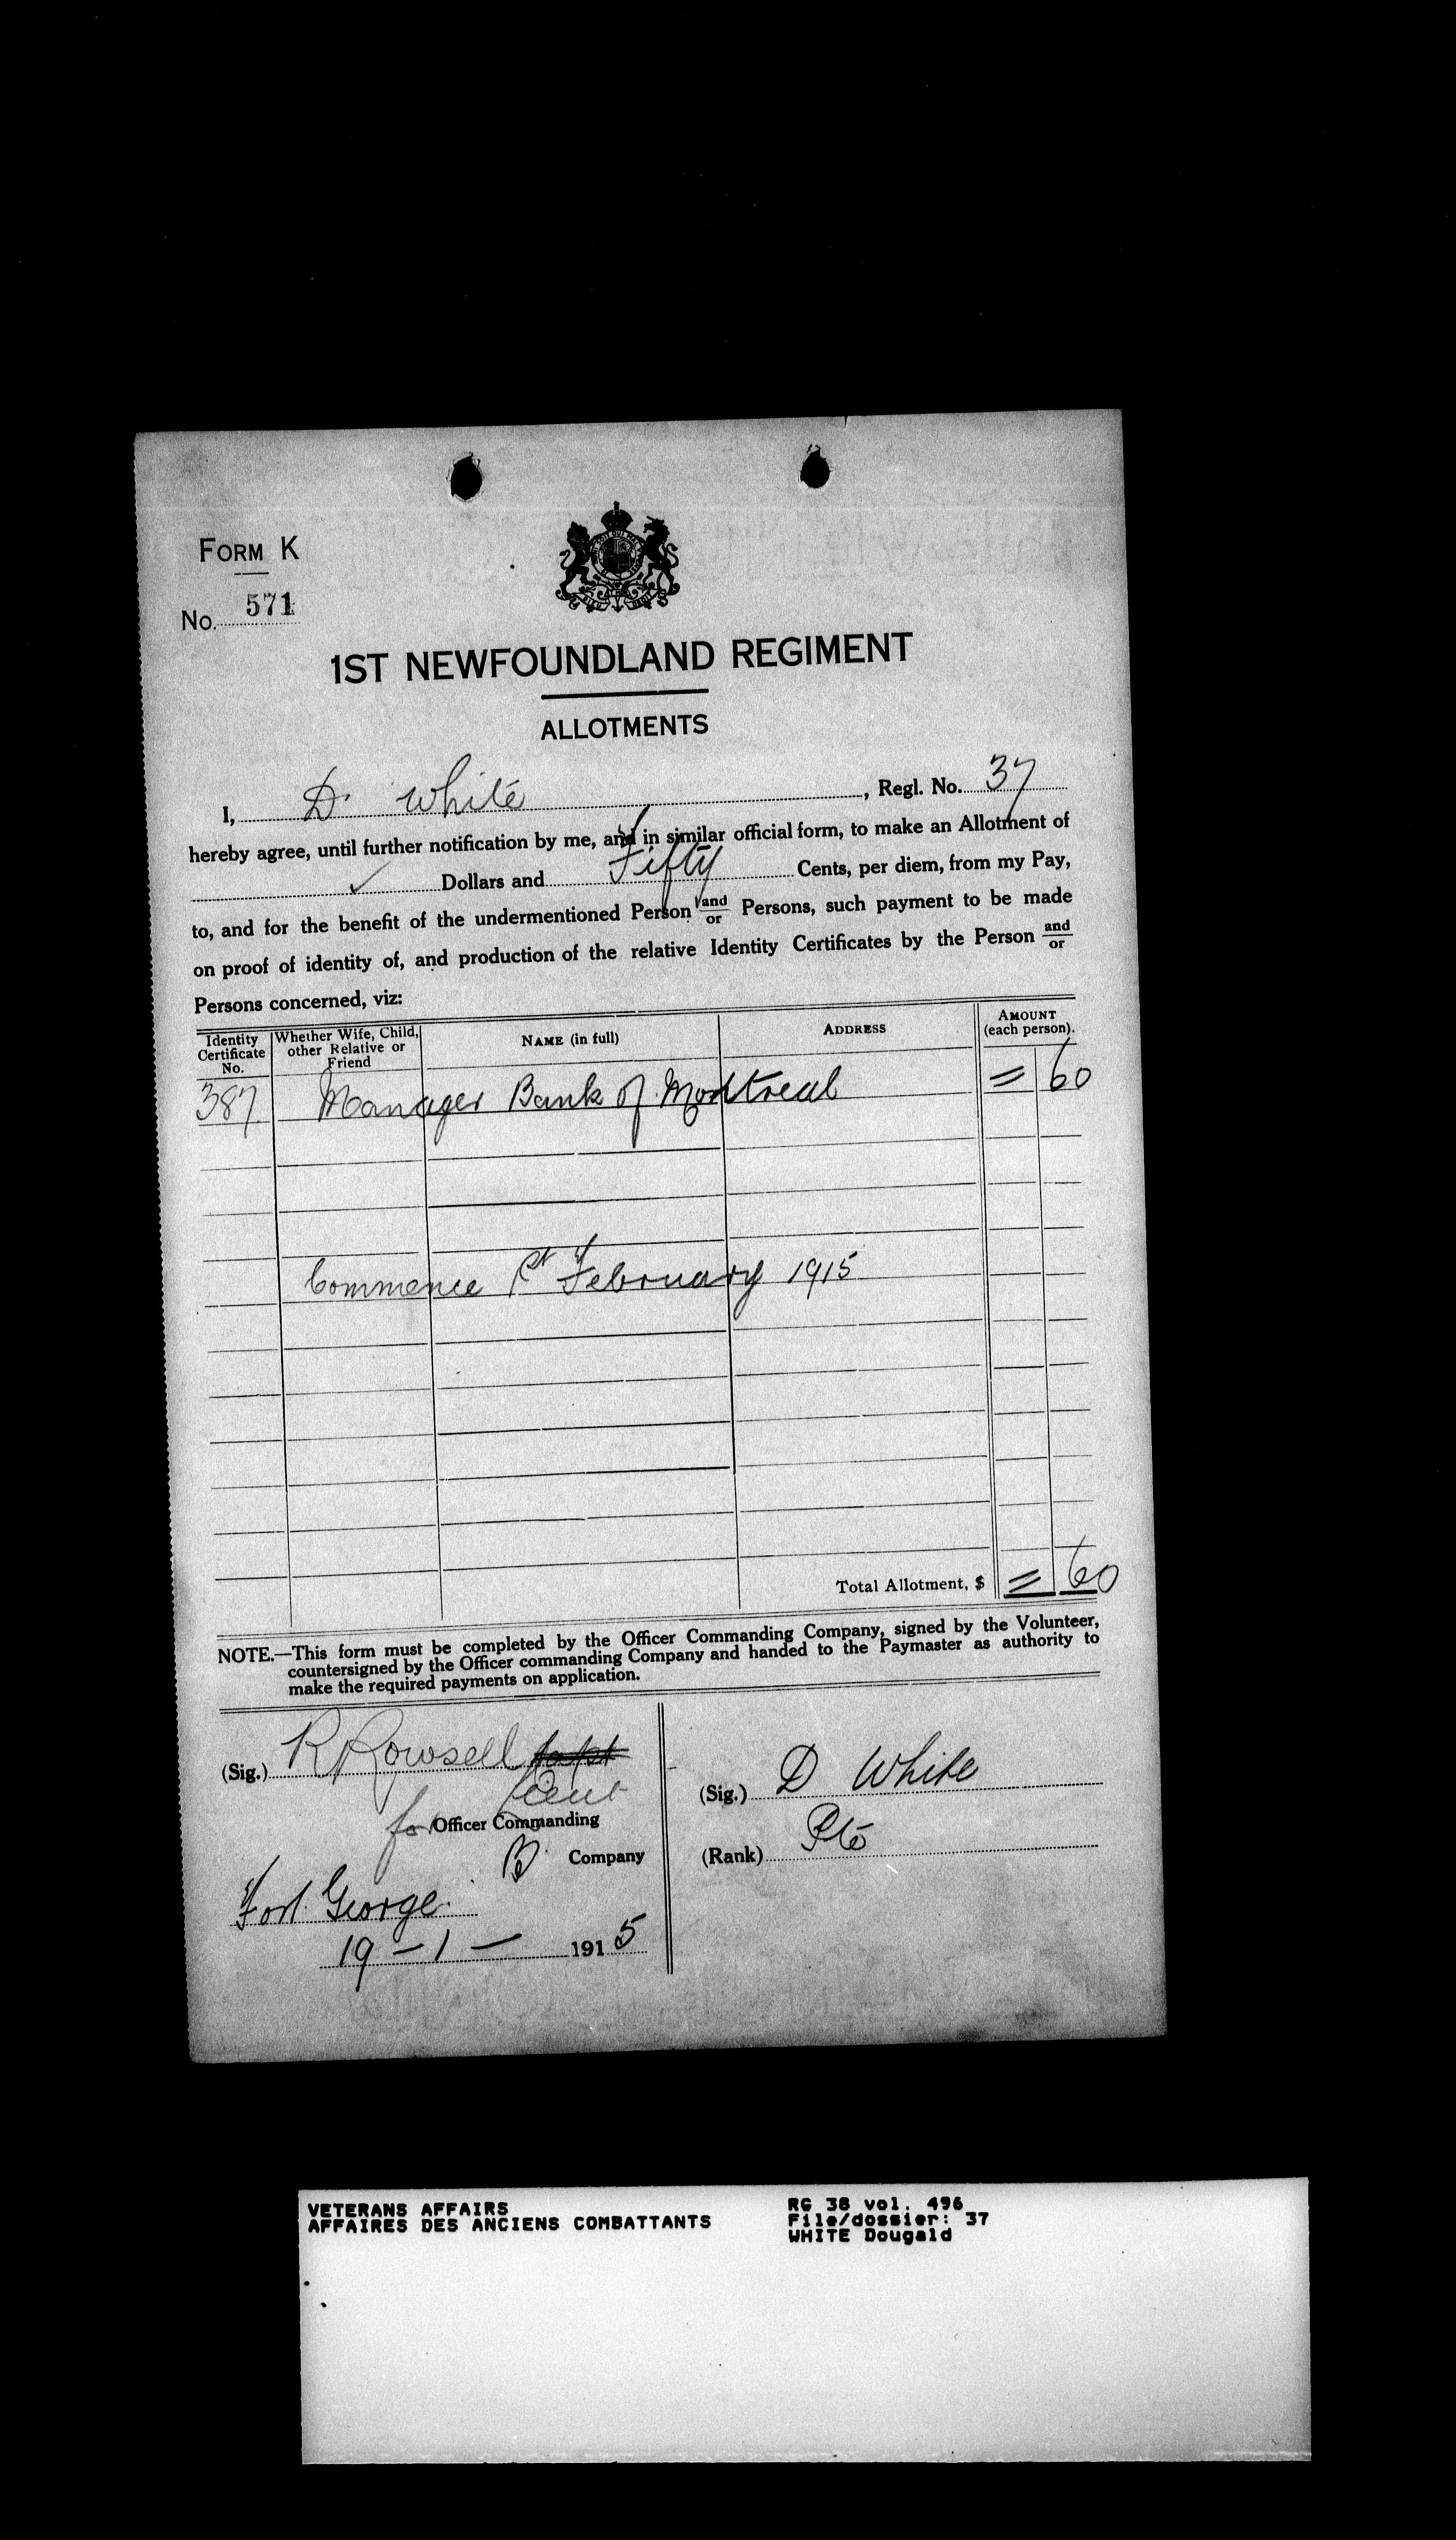 FORM K
No. 571
1ST NEWFOUNDLAND REGIMENT
ALLOTMENTS
I, D. White, Regl. No. 37
hereby agree, until further notification by me, and in similar official form, to make an Allotment of
✓ Dollars and Fifty Cents, per diem, from my Pay,
to, and for the benefit of the undermentioned Person and/or Persons, such payment to be made
on proof of identity of, and production of the relative Identity Certificates by the Person and/or
Persons concerned, viz:
Identity Certificate No. Whether Wife, Child, other Relative or Friend NAME (in full) ADDRESS AMOUNT (each person).
387 Manager Bank of Montreal = 60
Commence 1st February 1915
Total Allotment, $ = 60
NOTE.—This form must be completed by the Officer Commanding Company, signed by the Volunteer,
countersigned by the Officer commanding Company and handed to the Paymaster as authority to
make the required payments on application.
(Sig.) R Rowsell Capt
Lieut
for Officer Commanding
B. Company
Fort George.
19 – 1 – 1915
(Sig.) D White
(Rank) Pte
VETERANS AFFAIRS
AFFAIRES DES ANCIENS COMBATTANTS
RG 38 vol. 496
File/dossier: 37
WHITE Dougald